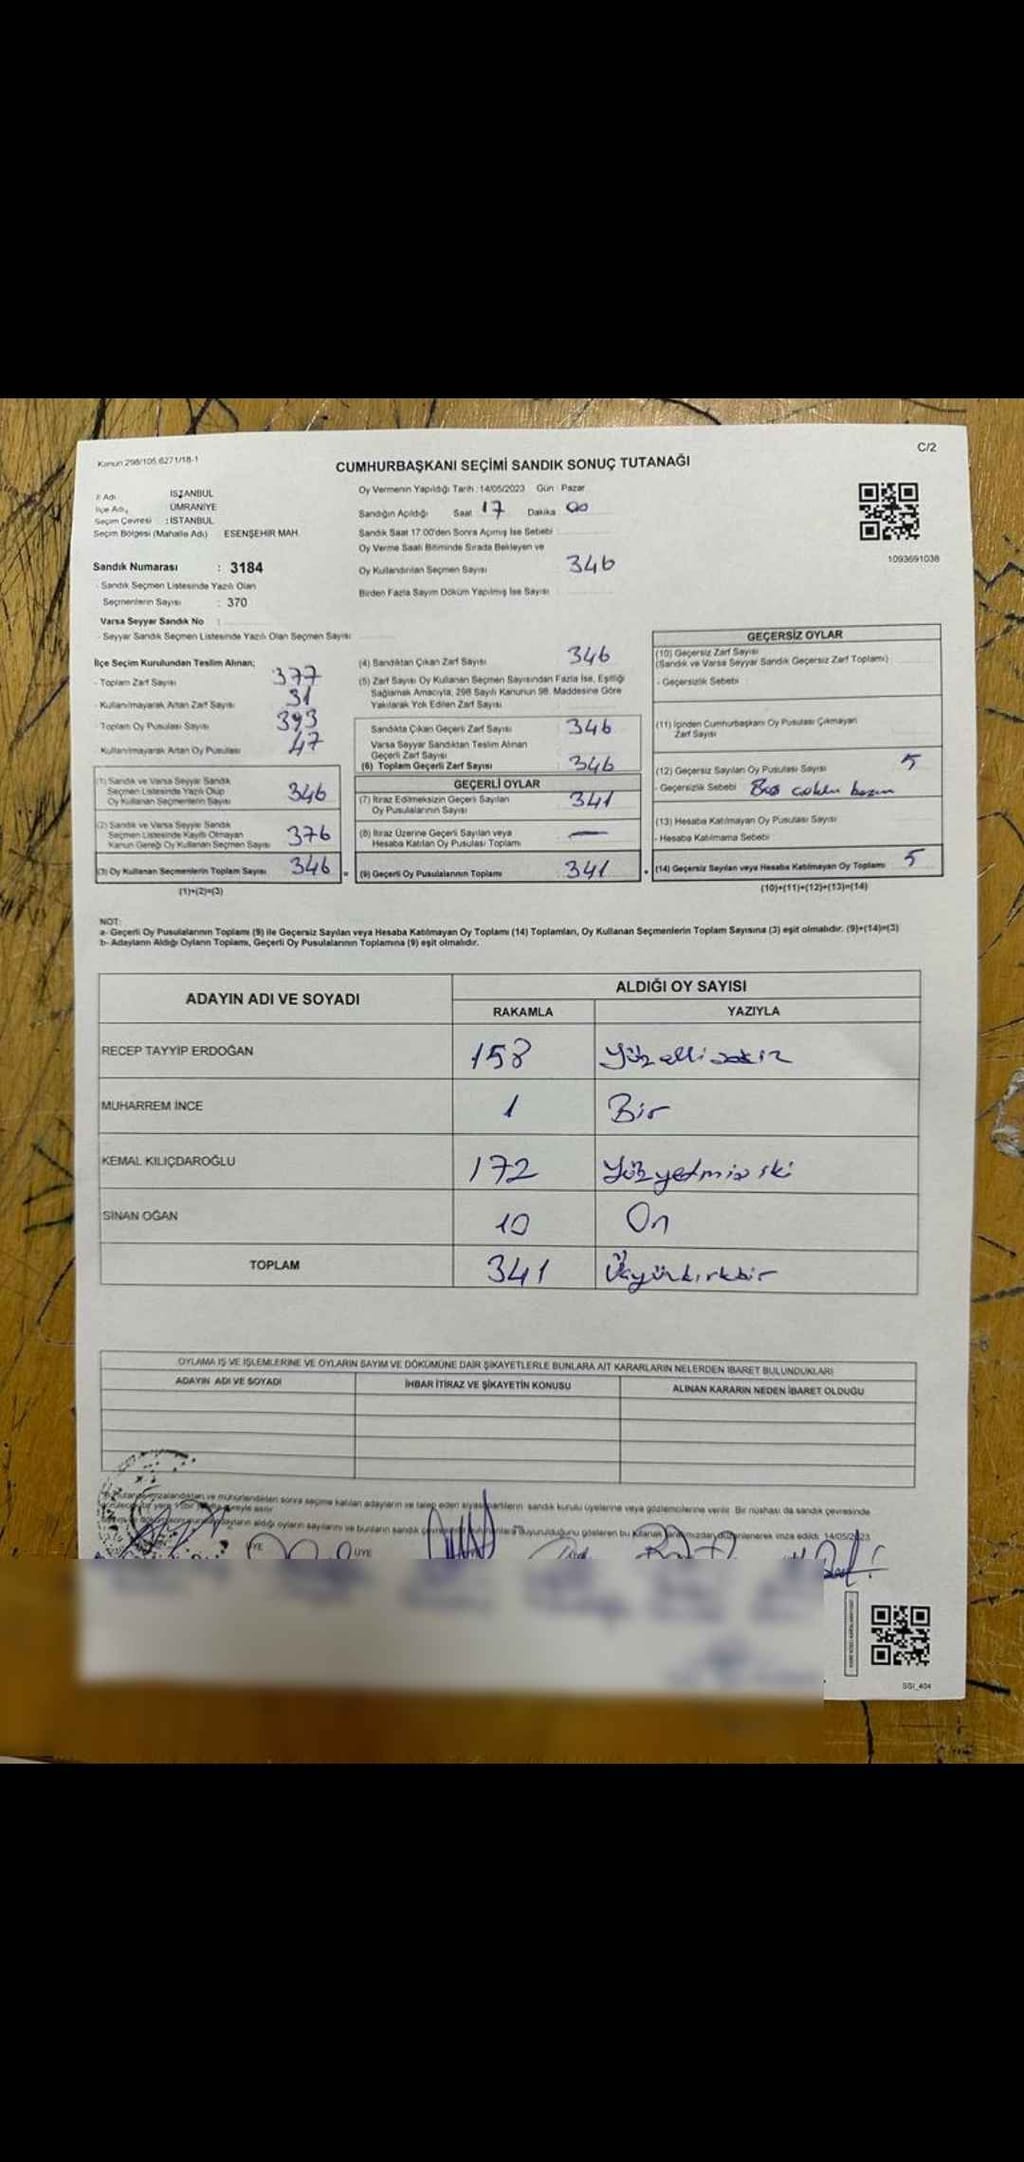 Kanun 298/105,6271/18-1
C/2
CUMHURBAŞKANI SEÇİMİ SANDIK SONUÇ TUTANAĞI
İl Adı ISTANBUL
İlçe Adı, ÜMRANİYE
Seçim Çevresi : İSTANBUL
Seçim Bölgesi (Mahalle Adı) ESENŞEHİR MAH.
Sandık Numarası : 3184
- Sandık Seçmen Listesinde Yazılı Olan
Seçmenlerin Sayısı : 370
Varsa Seyyar Sandık No :
- Seyyar Sandık Seçmen Listesinde Yazılı Olan Seçmen Sayısı
Oy Vermenin Yapıldığı Tarih : 14/05/2023 Gün : Pazar
Sandığın Açıldığı Saat 17 Dakika 00
Sandık Saat 17.00'den Sonra Açılmış İse Sebebi
Oy Verme Saati Bitiminde Sırada Bekleyen ve
Oy Kullandırılan Seçmen Sayısı 346
Birden Fazla Sayım Döküm Yapılmış İse Sayısı
1093691038
İlçe Seçim Kurulundan Teslim Alınan;
- Toplam Zarf Sayısı 377
- Kullanılmayarak Artan Zarf Sayısı 31
Toplam Oy Pusulası Sayısı 393
Kullanılmayarak Artan Oy Pusulası 47
(1) Sandık ve Varsa Seyyar Sandık
Seçmen Listesinde Yazılı Olup
Oy Kullanan Seçmenlerin Sayısı 346
(2) Sandık ve Varsa Seyyar Sandık
Seçmen Listesinde Kayıtlı Olmayan
Kanun Gereği Oy Kullanan Seçmen Sayısı 376
(3) Oy Kullanan Seçmenlerin Toplam Sayısı 346 =
(1)+(2)=(3)
(4) Sandıktan Çıkan Zarf Sayısı 346
(5) Zarf Sayısı Oy Kullanan Seçmen Sayısından Fazla İse, Eşitliği
Sağlamak Amacıyla, 298 Sayılı Kanunun 98. Maddesine Göre
Yakılarak Yok Edilen Zarf Sayısı
Sandıkta Çıkan Geçerli Zarf Sayısı 346
Varsa Seyyar Sandıktan Teslim Alınan
Geçerli Zarf Sayısı
(6) Toplam Geçerli Zarf Sayısı 346
GEÇERLİ OYLAR
(7) İtiraz Edilmeksizin Geçerli Sayılan
Oy Pusulalarının Sayısı 341
(8) İtiraz Üzerine Geçerli Sayılan veya
Hesaba Katılan Oy Pusulası Toplamı —
(9) Geçerli Oy Pusulalarının Toplamı 341 +
GEÇERSİZ OYLAR
(10) Geçersiz Zarf Sayısı
(Sandık ve Varsa Seyyar Sandık Geçersiz Zarf Toplamı)
- Geçersizlik Sebebi :
(11) İçinden Cumhurbaşkanı Oy Pusulası Çıkmayan
Zarf Sayısı
(12) Geçersiz Sayılan Oy Pusulası Sayısı 5
- Geçersizlik Sebebi
(13) Hesaba Katılmayan Oy Pusulası Sayısı
- Hesaba Katılmama Sebebi
(14) Geçersiz Sayılan veya Hesaba Katılmayan Oy Toplamı 5
(10)+(11)+(12)+(13)=(14)
NOT:
a- Geçerli Oy Pusulalarının Toplamı (9) ile Geçersiz Sayılan veya Hesaba Katılmayan Oy Toplamı (14) Toplamları, Oy Kullanan Seçmenlerin Toplam Sayısına (3) eşit olmalıdır. (9)+(14)=(3)
b- Adayların Aldığı Oyların Toplamı, Geçerli Oy Pusulalarının Toplamına (9) eşit olmalıdır.
ADAYIN ADI VE SOYADI ALDIĞI OY SAYISI
RAKAMLA YAZIYLA
RECEP TAYYİP ERDOĞAN 158 Yüzellisekiz
MUHARREM İNCE 1 Bir
KEMAL KILIÇDAROĞLU 172 Yüzyetmişiki
SİNAN OĞAN 10 On
TOPLAM 341 Üçyüzkırkbir
OYLAMA İŞ VE İŞLEMLERİNE VE OYLARIN SAYIM VE DÖKÜMÜNE DAİR ŞİKAYETLERLE BUNLARA AİT KARARLARIN NELERDEN İBARET BULUNDUKLARI
ADAYIN ADI VE SOYADI İHBAR İTİRAZ VE ŞİKAYETİN KONUSU ALINAN KARARIN NEDEN İBARET OLDUĞU
mühürlendikten sonra seçime katılan adayların ve talep eden siyasi partilerin sandık kurulu üyelerine veya gözlemcilerine verilir. Bir nüshası da sandık çevresinde
adayların aldığı oyların sayılarını ve bunların sandık duyurulduğunu gösteren bu tutanak tarafımızdan düzenlenerek imza edildi. 14/05/2023
ÜYE ÜYE
SSI_404